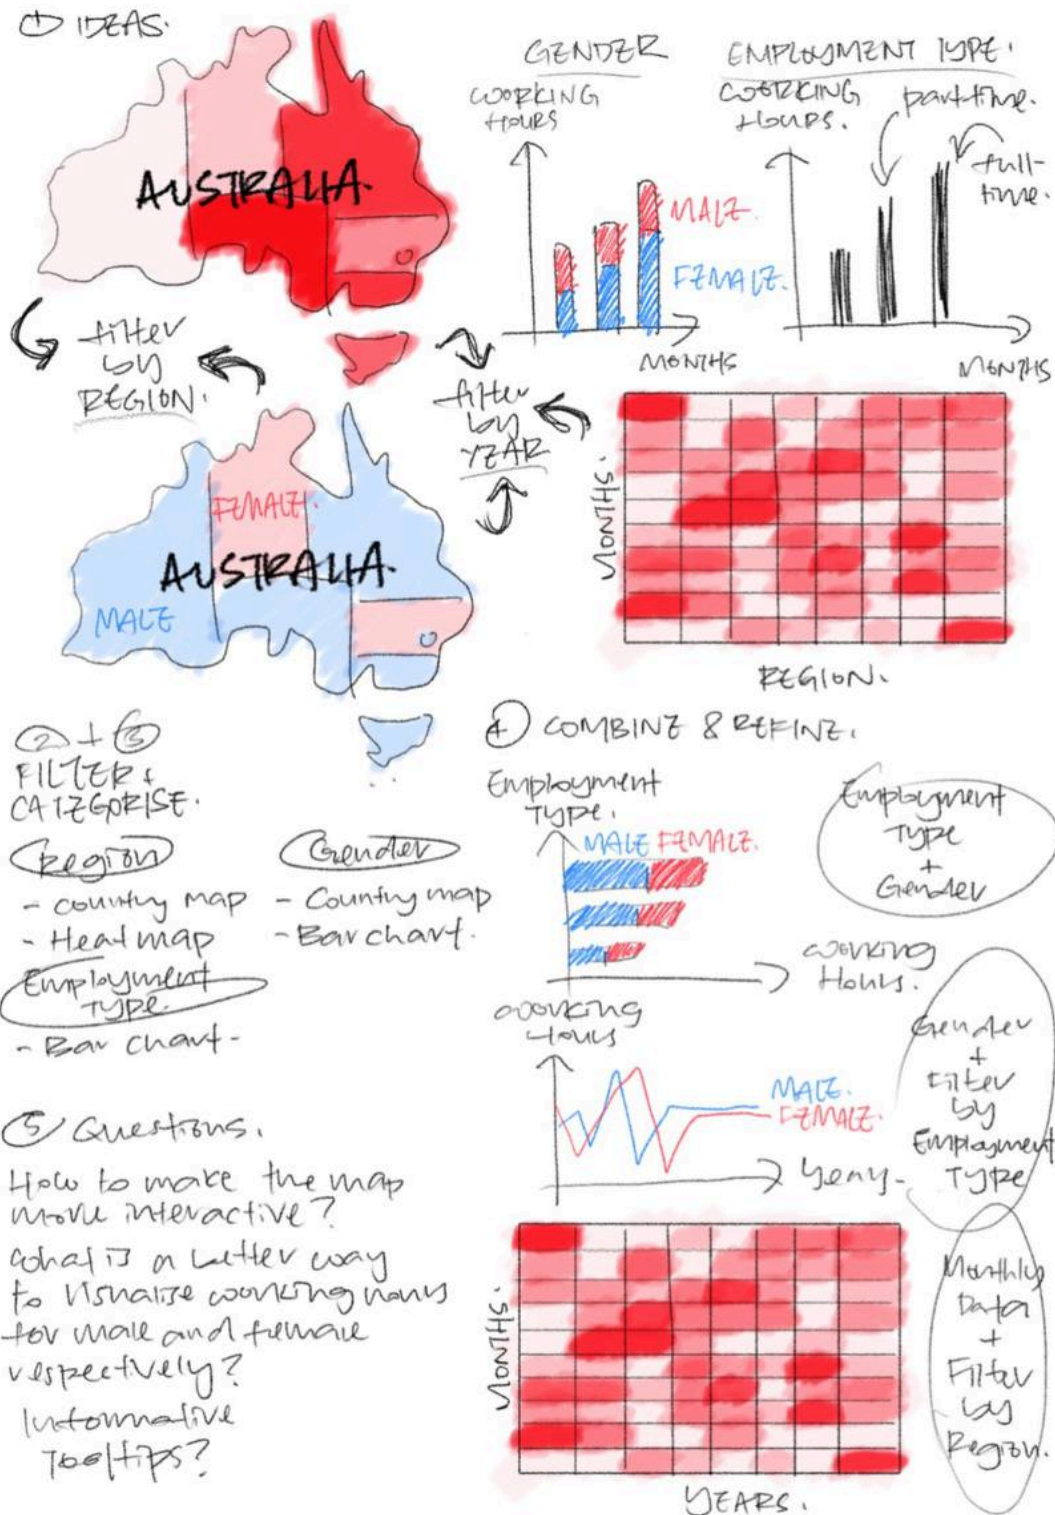 ① IDEAS.
AUSTRALIA.
filter
by
REGION.
GENDER
WORKING
HOURS
MALE.
FEMALE.
MONTHS
EMPLOYMENT TYPE.
WORKING
HOURS.
part-time.
full-
time.
MONTHS
FEMALE.
AUSTRALIA.
MALE
filter
by
YEAR
MONTHS.
REGION.
② + ③
FILTER &
CATEGORISE.
Region
- country map
- Heat map
Gender
- Country map
- Bar chart.
Employment
Type.
- Bar chart -
④ COMBINE & REFINE.
Employment
Type.
MALE FEMALE.
Working
Hours.
Employment
Type
+
Gender
Working
Hours
MALE.
FEMALE.
Years.
Gender
+
Filter
by
Employment
Type
MONTHS.
YEARS.
Monthly
Data
+
Filter
by
Region.
⑤ Questions.
How to make the map
more interactive?
What is a better way
to visualise working hours
for male and female
respectively?
Informative
Tooltips?